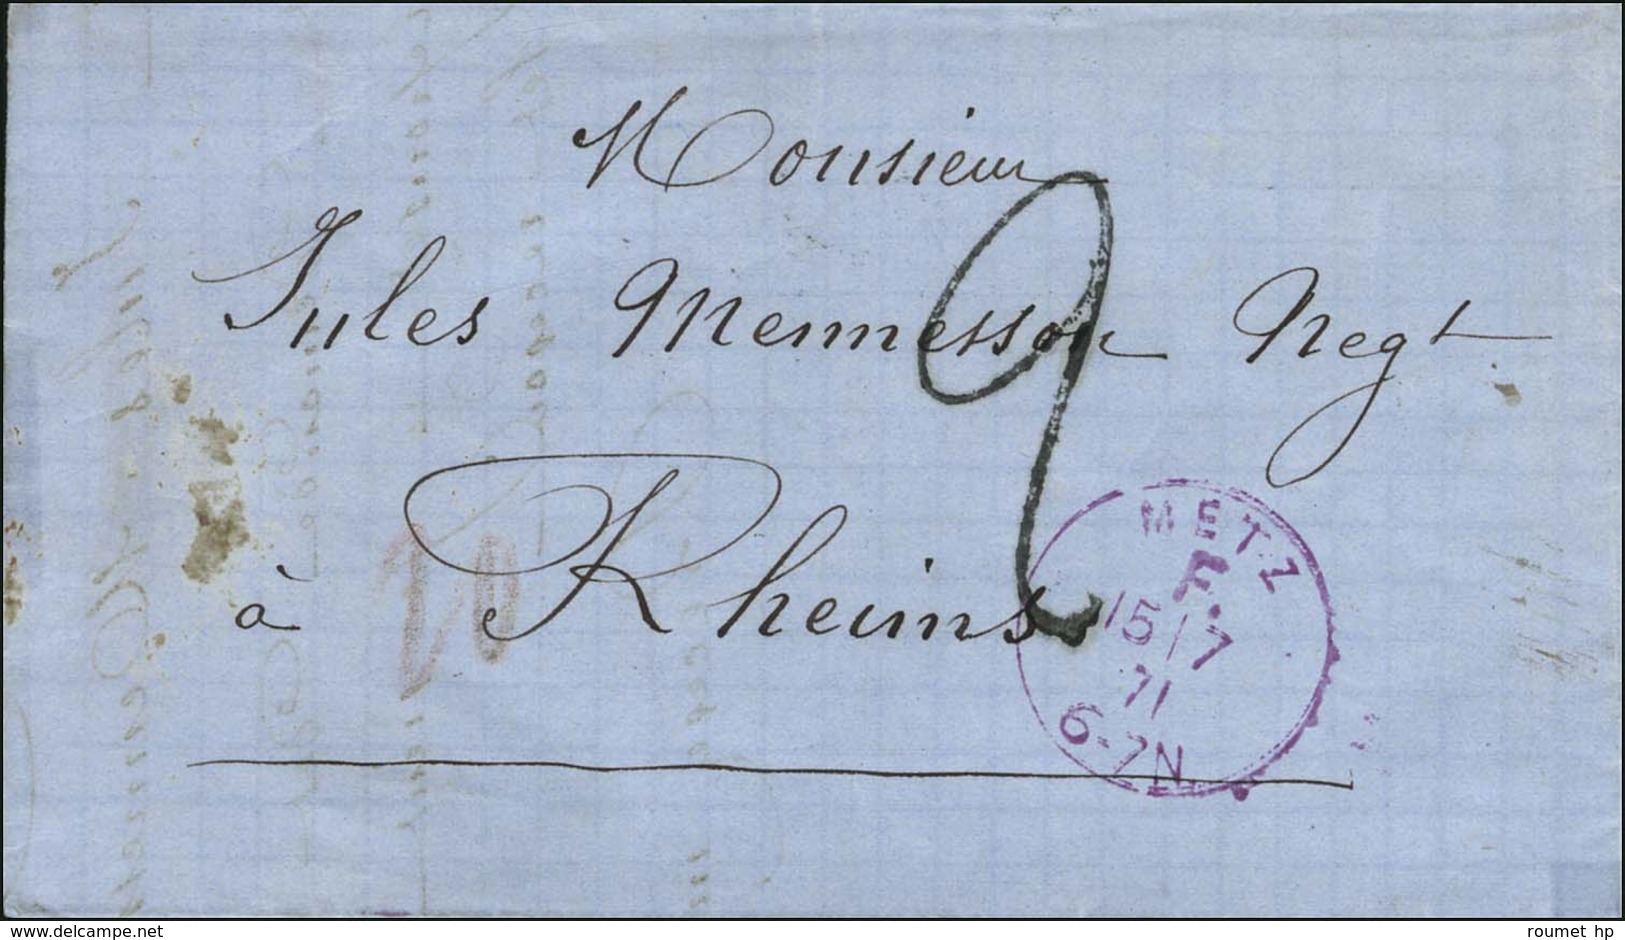 Monsieur
Jules Mennesson Negt
à Rheims
2
20
METZ
F.
15/7
71
6-7N.
www.delcampe.net
roumet hp